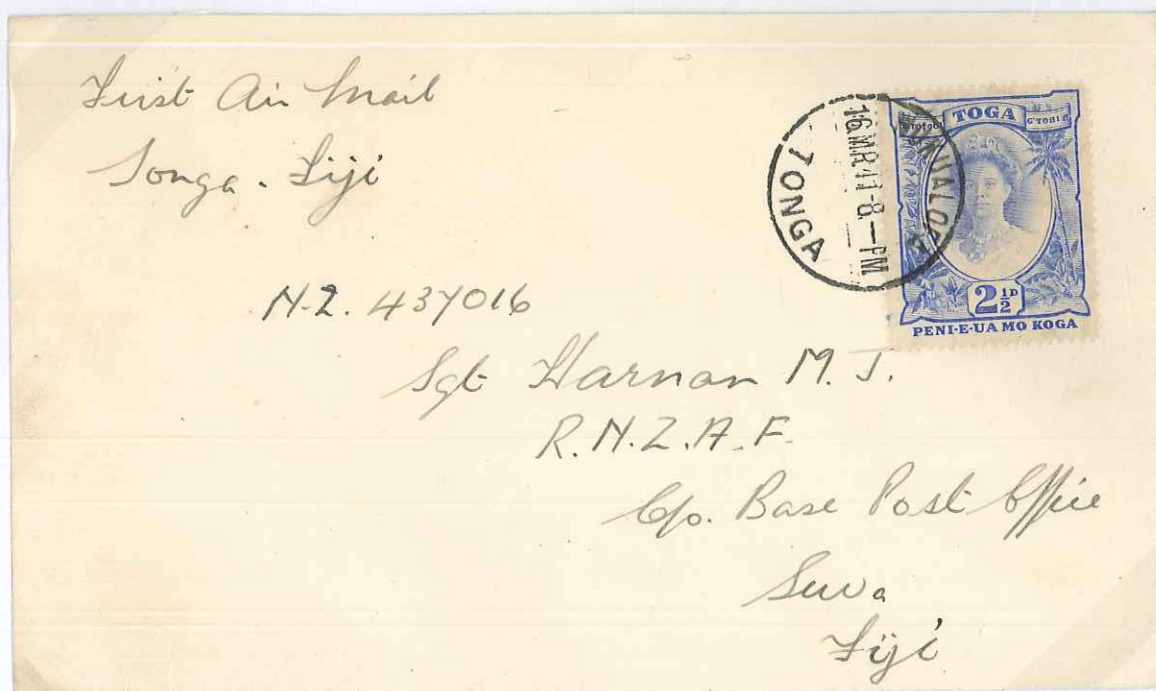 First Air Mail
Tonga - Fiji
NUKUALOFA
16 MR 41 - 8 - PM
TONGA
TOGA
2½D
PENI-E-UA MO KOGA
N.Z. 437016
Sgt Harnan M. J.
R.N.Z.A.F.
C/o. Base Post Office
Suva
Fiji